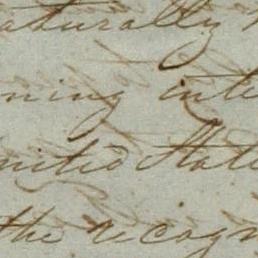 aturally
ning inte
nited State
the recogn